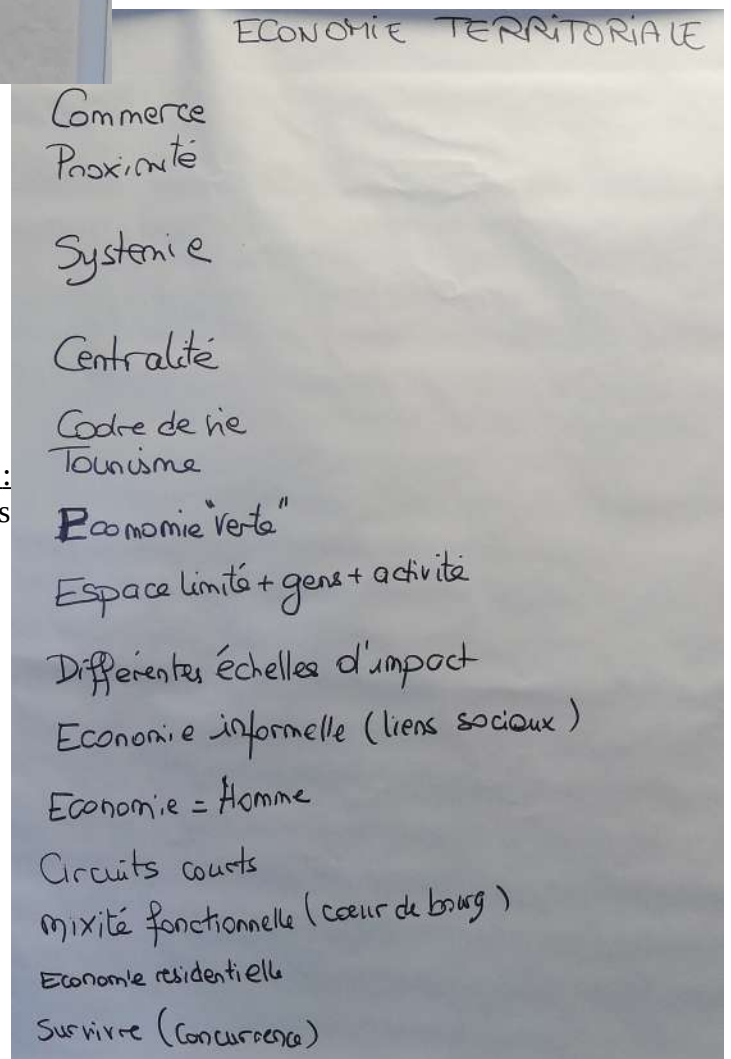 ECONOMIE TERRITORIALE
Commerce
Proximité
Systemie
Centralité
Cadre de vie
Tourisme
:
s
Economie "verte"
Espace limité + gens + activité
Différentes échelles d'impact
Economie informelle (liens sociaux)
Economie = Homme
Circuits courts
mixité fonctionnelle (cœur de bourg)
Economie residentielle
Survivre (Concurrence)